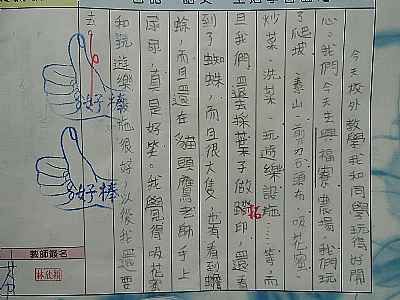 今天校外教學我和同學玩得好開
心。我們今天去興福寮農場。我們玩
了爬坡、壽山、剪刀石頭布、吸花蜜、
炒菜、洗菜、玩遊樂設施…等，而
且我們還去採葉子做蹋印，還看
拓
到了蜘蛛，而且很大隻，也有看到蟾
蜍，而且還在貓頭鷹老師手上
尿尿，真是好笑。我覺得吸花蜜
和玩遊樂設施很好，以後我還要
去。
好棒
好棒
教師簽名
林欣穎